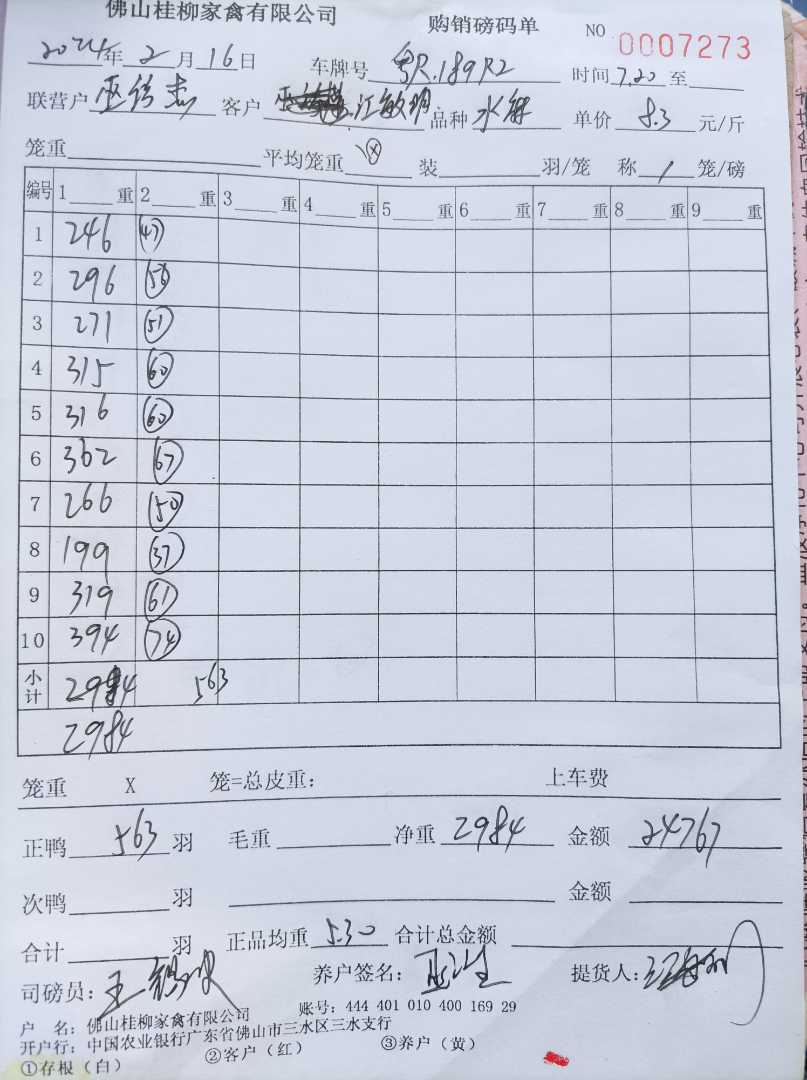 佛山桂柳家禽有限公司 购销磅码单 NO 0007273
2024年2月16日 车牌号 粤R.189R2 时间7.20至
联营户 客户 江敏明 品种 水鸭 单价 8.3 元/斤
笼重 平均笼重 装 羽/笼 称 1 笼/磅
编号 1 重 2 重 3 重 4 重 5 重 6 重 7 重 8 重 9 重
1 246 47
2 296 56
3 271 51
4 315 60
5 316 60
6 362 67
7 266 50
8 199 37
9 319 61
10 394 74
小计 2984 563
2984
笼重 X 笼=总皮重: 上车费
正鸭 563 羽 毛重 净重 2984 金额 24767
次鸭 羽 金额
合计 羽 正品均重 5.30 合计总金额
司磅员: 王 养户签名: 提货人:
户 名: 佛山桂柳家禽有限公司 账号: 444 401 010 400 169 29
开户行: 中国农业银行广东省佛山市三水区三水支行
①存根(白) ②客户(红) ③养户(黄)